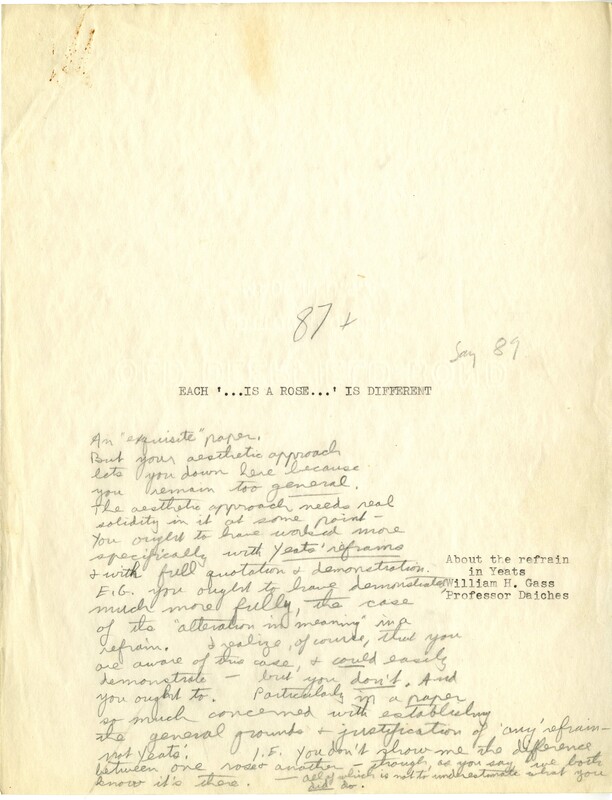 87 +
Say 89
EACH '...IS A ROSE...' IS DIFFERENT
An "exquisite" paper.
But your aesthetic approach
lets you down here because
you remain too general.
The aesthetic approach needs real
solidity in it at some point –
You ought to have worked more
specifically with Yeats' refrains
& with full quotation & demonstration.
E.G. you ought to have demonstrated
much more fully, the case
of the "alteration in meaning" in a
refrain. I realize, of course, that you
are aware of this case, & could easily
demonstrate – but you don't. And
you ought to. Particularly in a paper
so much concerned with establishing
the general grounds & justification of 'any' refrain –
not Yeats'. I.E. You don't show me the difference
between one rose & another – though, as you say, we both
know it's there. – all of which is not to underestimate what you
did do.
About the refrain
in Yeats
William H. Gass
Professor Daiches